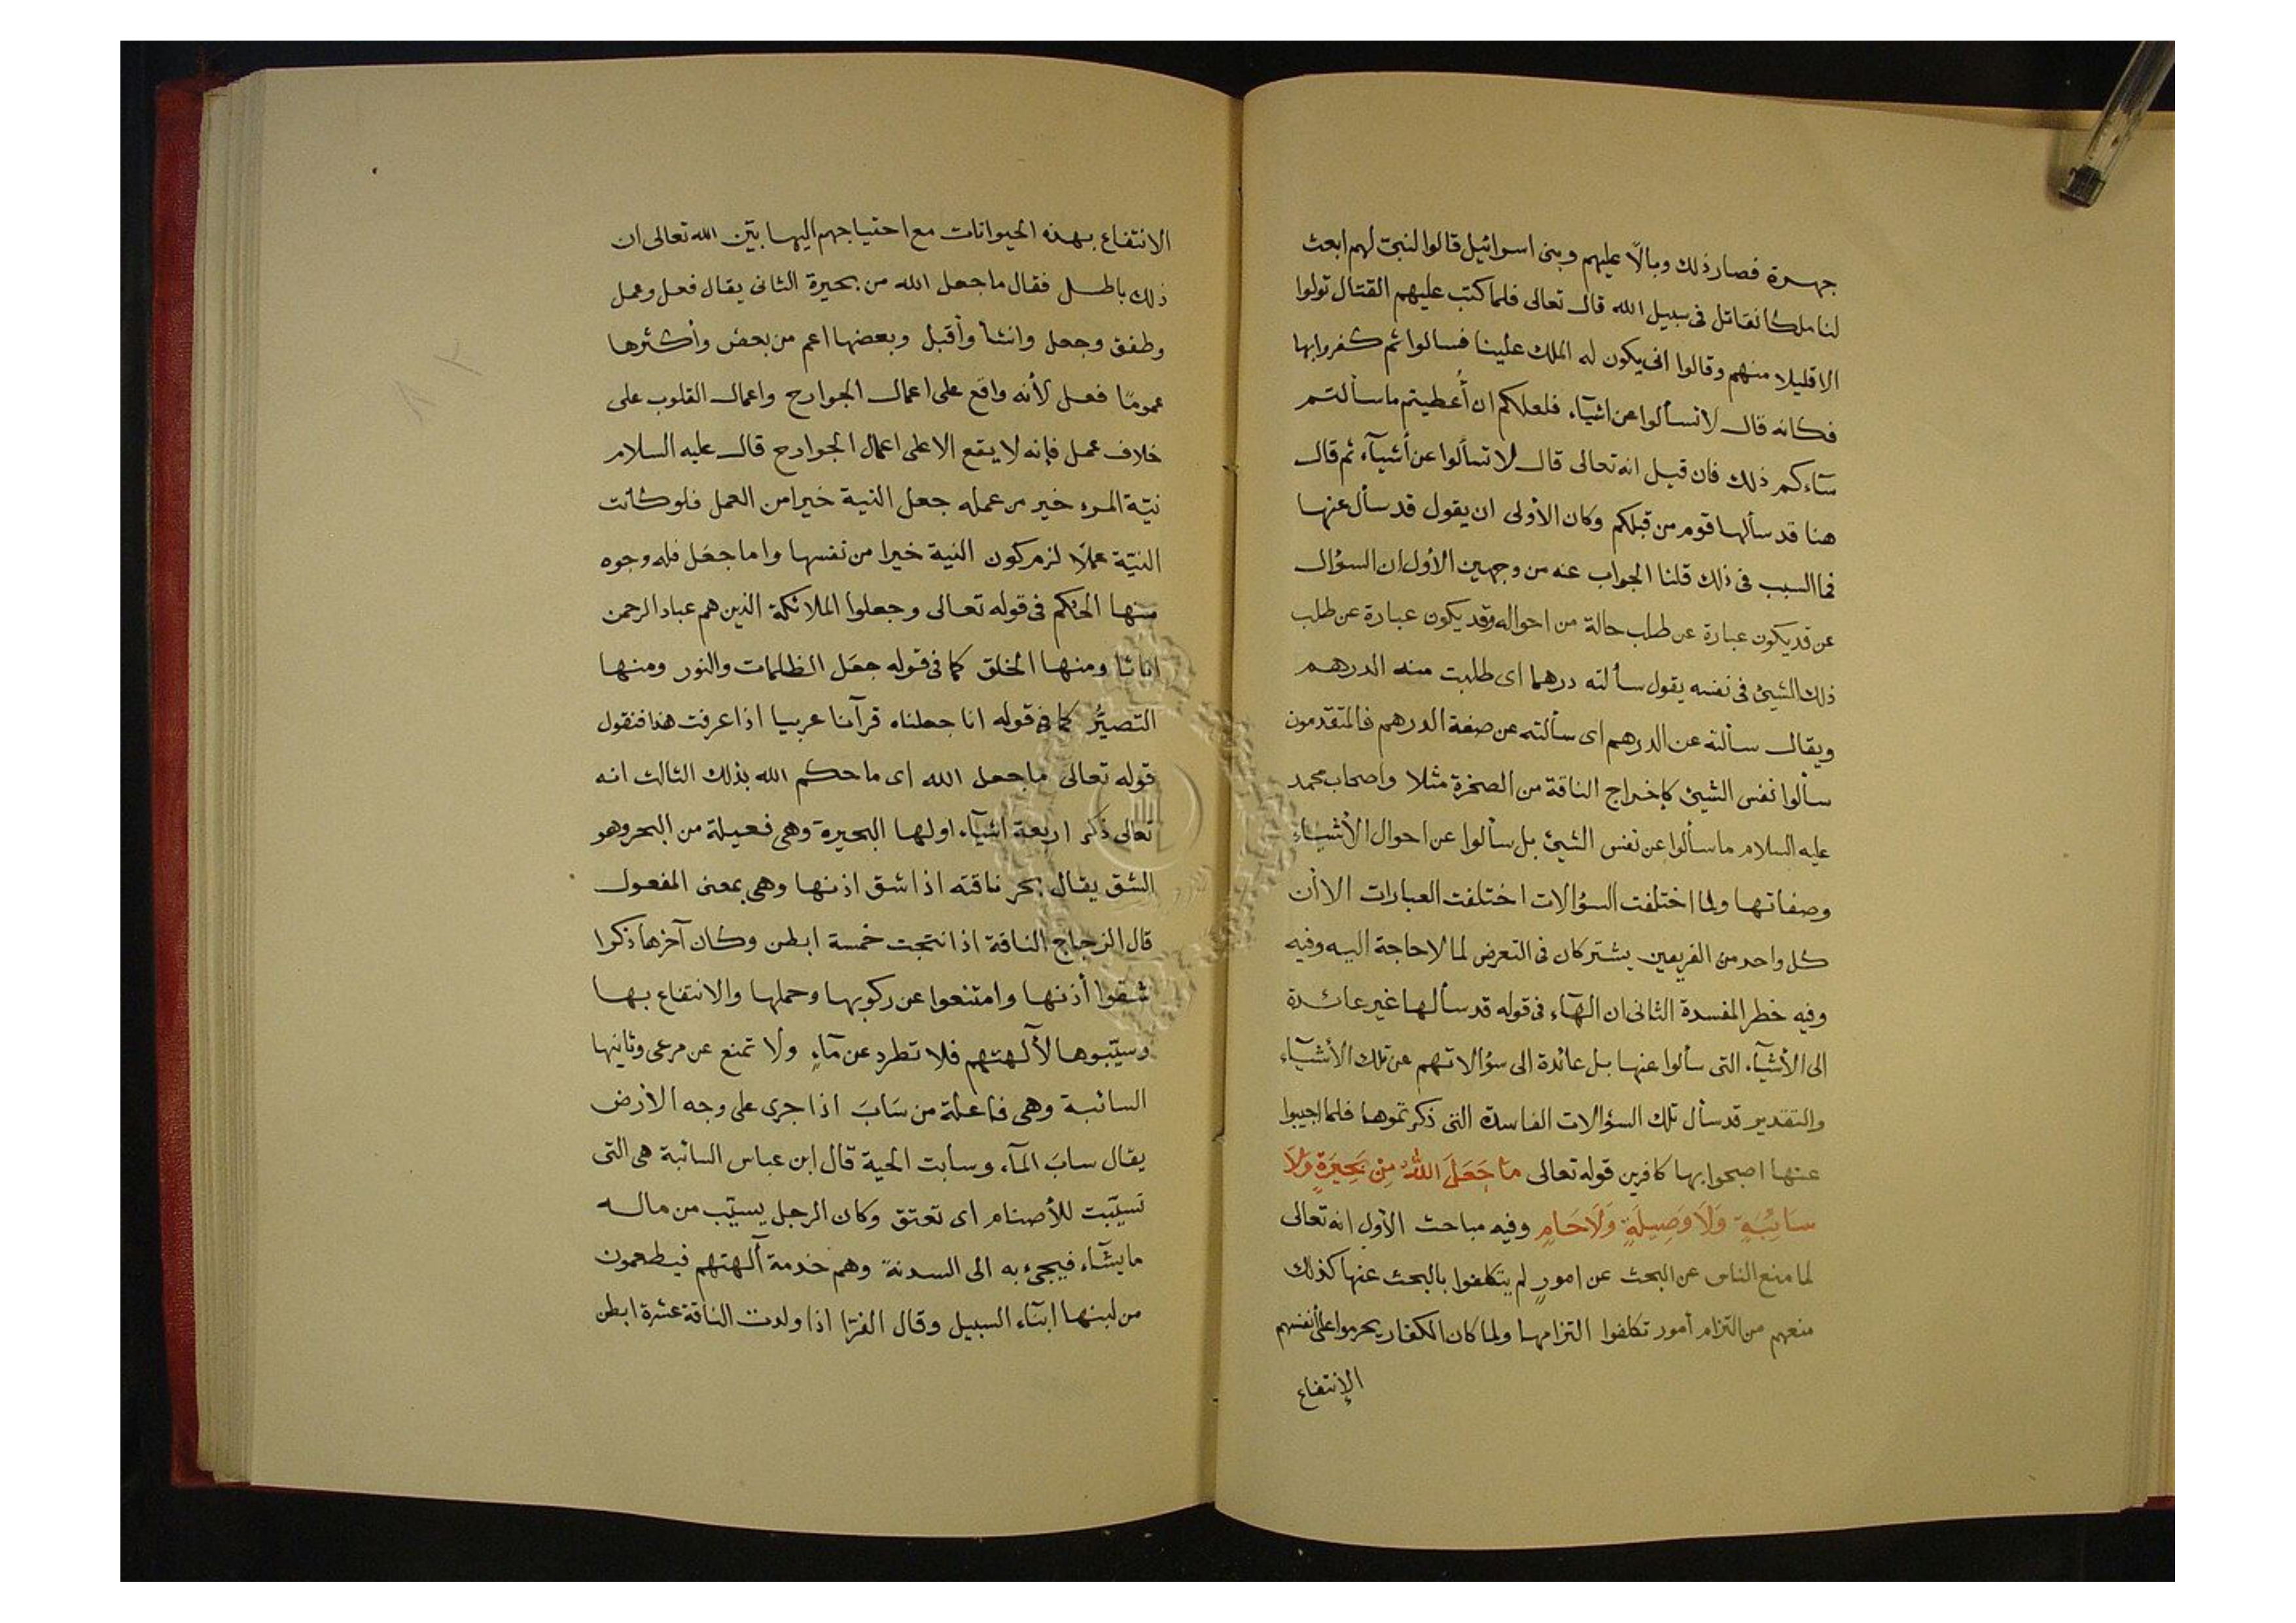 جهرة فصار ذلك وبالًا عليهم وبنى اسرائيل قالوا لنبىّ لهم ابعث
لنا ملكا نقاتل فى سبيل الله قال تعالى فلما كتب عليهم القتال تولوا
الا قليلا منهم وقالوا انى يكون له الملك علينا فسالوا ثم كفروا بها
فكانه قال لا تسألوا عن اشيآء فلعلكم ان أُعطيتم ما سألتم
سآءكم ذلك فان قيل انه تعالى قال لا تسألوا عن أشيآء ثم قال
هنا قد سألها قوم من قبلكم وكان الأولى ان يقول قد سأل عنها
فما السبب فى ذلك قلنا الجواب عنه من وجهين الأول ان السؤال
عن قد يكون عبارة عن طلب حالة من احواله وقد يكون عبارة عن طلب
ذلك الشيئ فى نفسه يقول سألته درهما اى طلبت منه الدرهم
ويقال سألته عن الدرهم اى سألته عن صفة الدرهم فالمتقدمون
سألوا نفس الشيئ كإخراج الناقة من الصخرة مثلا واصحاب محمد
عليه السلام ما سألوا عن نفس الشيئ بل سألوا عن احوال الأشياء
وصفاتها ولما اختلفت السؤالات اختلفت العبارات الا أن
كل واحد من الفريقين يشتركان فى التعرض لما لا حاجة اليه وفيه
وفيه خطر المفسدة الثانى ان الهآء فى قوله قد سألها غير عائدة
الى الأشيآء التى سألوا عنها بل عائدة الى سؤالاتهم عن تلك الأشيآء
والتقدير قد سأل تلك السؤالات الفاسدة التى ذكرتموها فلما اجيبوا
عنها اصبحوا بها كافرين قوله تعالى مَا جَعَلَ اللهُ مِنْ بَحِيرَةٍ وَلَا
سَائِبَةٍ وَلَا وَصِيلَةٍ وَلَا حَامٍ وفيه مباحث الأول انه تعالى
لما منع الناس عن البحث عن امورٍ لم يتكلفوا بالبحث عنها كذلك
منعهم من التزام أمور تكلفوا التزامها ولما كان الكفار يحرموا على أنفسهم
الإنتفاع
الانتفاع بهذه الحيوانات مع احتياجهم اليها بيّن الله تعالى ان
ذلك باطل فقال ما جعل الله من بحيرة الثانى يقال فعل وعمل
وطفق وجعل وانشأ وأقبل وبعضها اعم من بعض وأكثرها
عمومًا فعل لأنه واقع على اعمال الجوارح واعمال القلوب على
خلاف عمل فإنه لا يقع الا على اعمال الجوارح قال عليه السلام
نيّة المرء خير من عمله جعل النية خيرا من العمل فلو كانت
النيّة عملًا لزم كون النية خيرا من نفسها واما جعَل فله وجوه
منها الحكم فى قوله تعالى وجعلوا الملائكة الذين هم عباد الرحمن
اناثا ومنها الخلق كما فى قوله جعَل الظلمات والنور ومنها
التصيُّر كما فى قوله انا جعلناه قرآنا عربيا اذا عرفت هذا فنقول
قوله تعالى ما جعل الله اى ما حكم الله بذلك الثالث انه
تعالى ذكر اربعة اشيآء اولها البحيرة وهى فعيلة من البحر وهو
الشق يقال بحر ناقته اذا شق اذنها وهى بمعنى المفعول
قال الزجاج الناقة اذا نتجت خمسة ابطن وكان آخرها ذكرا
شقوا أذنها وامتنعوا عن ركوبها وحملها والانتفاع بها
وسيّبوها لآلهتهم فلا تطرد عن مآءٍ ولا تمنع عن مرعى وثانيها
السائبة وهى فاعلة من سَابَ اذا جرى على وجه الأرض
يقال سابَ المآء وسابت الحية قال ابن عباس السائبة هى التى
تسيّبت للأصنام اى تعتق وكان الرجل يسيّب من ماله
ما يشآء فيجئ به الى السدنة وهم خدمة آلهتهم فيطعمون
من لبنها ابنآء السبيل وقال الفرّا اذا ولدت الناقة عشرة ابطن